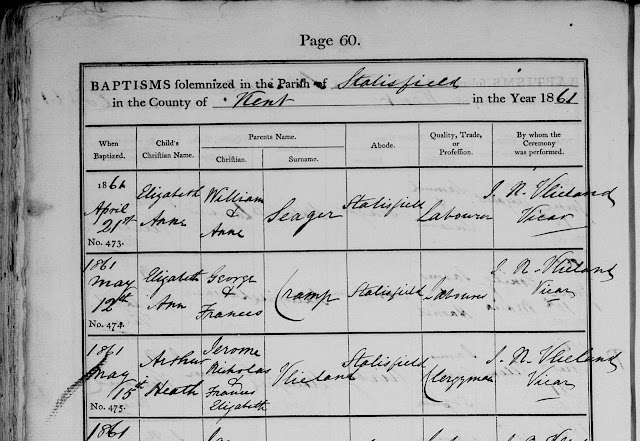 Page 60.
BAPTISMS solemnized in the Parish of Stalisfield
in the County of Kent in the Year 1861
When Baptized. Child's Christian Name. Parents Name. Abode. Quality, Trade, or Profession. By whom the Ceremony was performed.
Christian. Surname.
1861
April
21st
No. 473.
Elizabeth
Anne
William
&
Anne
Seager
Stalisfield
Labourer
J. N. Vlieland
Vicar
1861
May
12th
No. 474.
Elizabeth
Ann
George
&
Frances
Cramp
Stalisfield
Labourer
J. N. Vlieland
Vicar
1861
May
15th
No. 475.
Arthur
Heath
Jerome
Nicholas
&
Frances
Elizabeth
Vlieland
Stalisfield
Clergyman
J. N. Vlieland
Vicar
1861